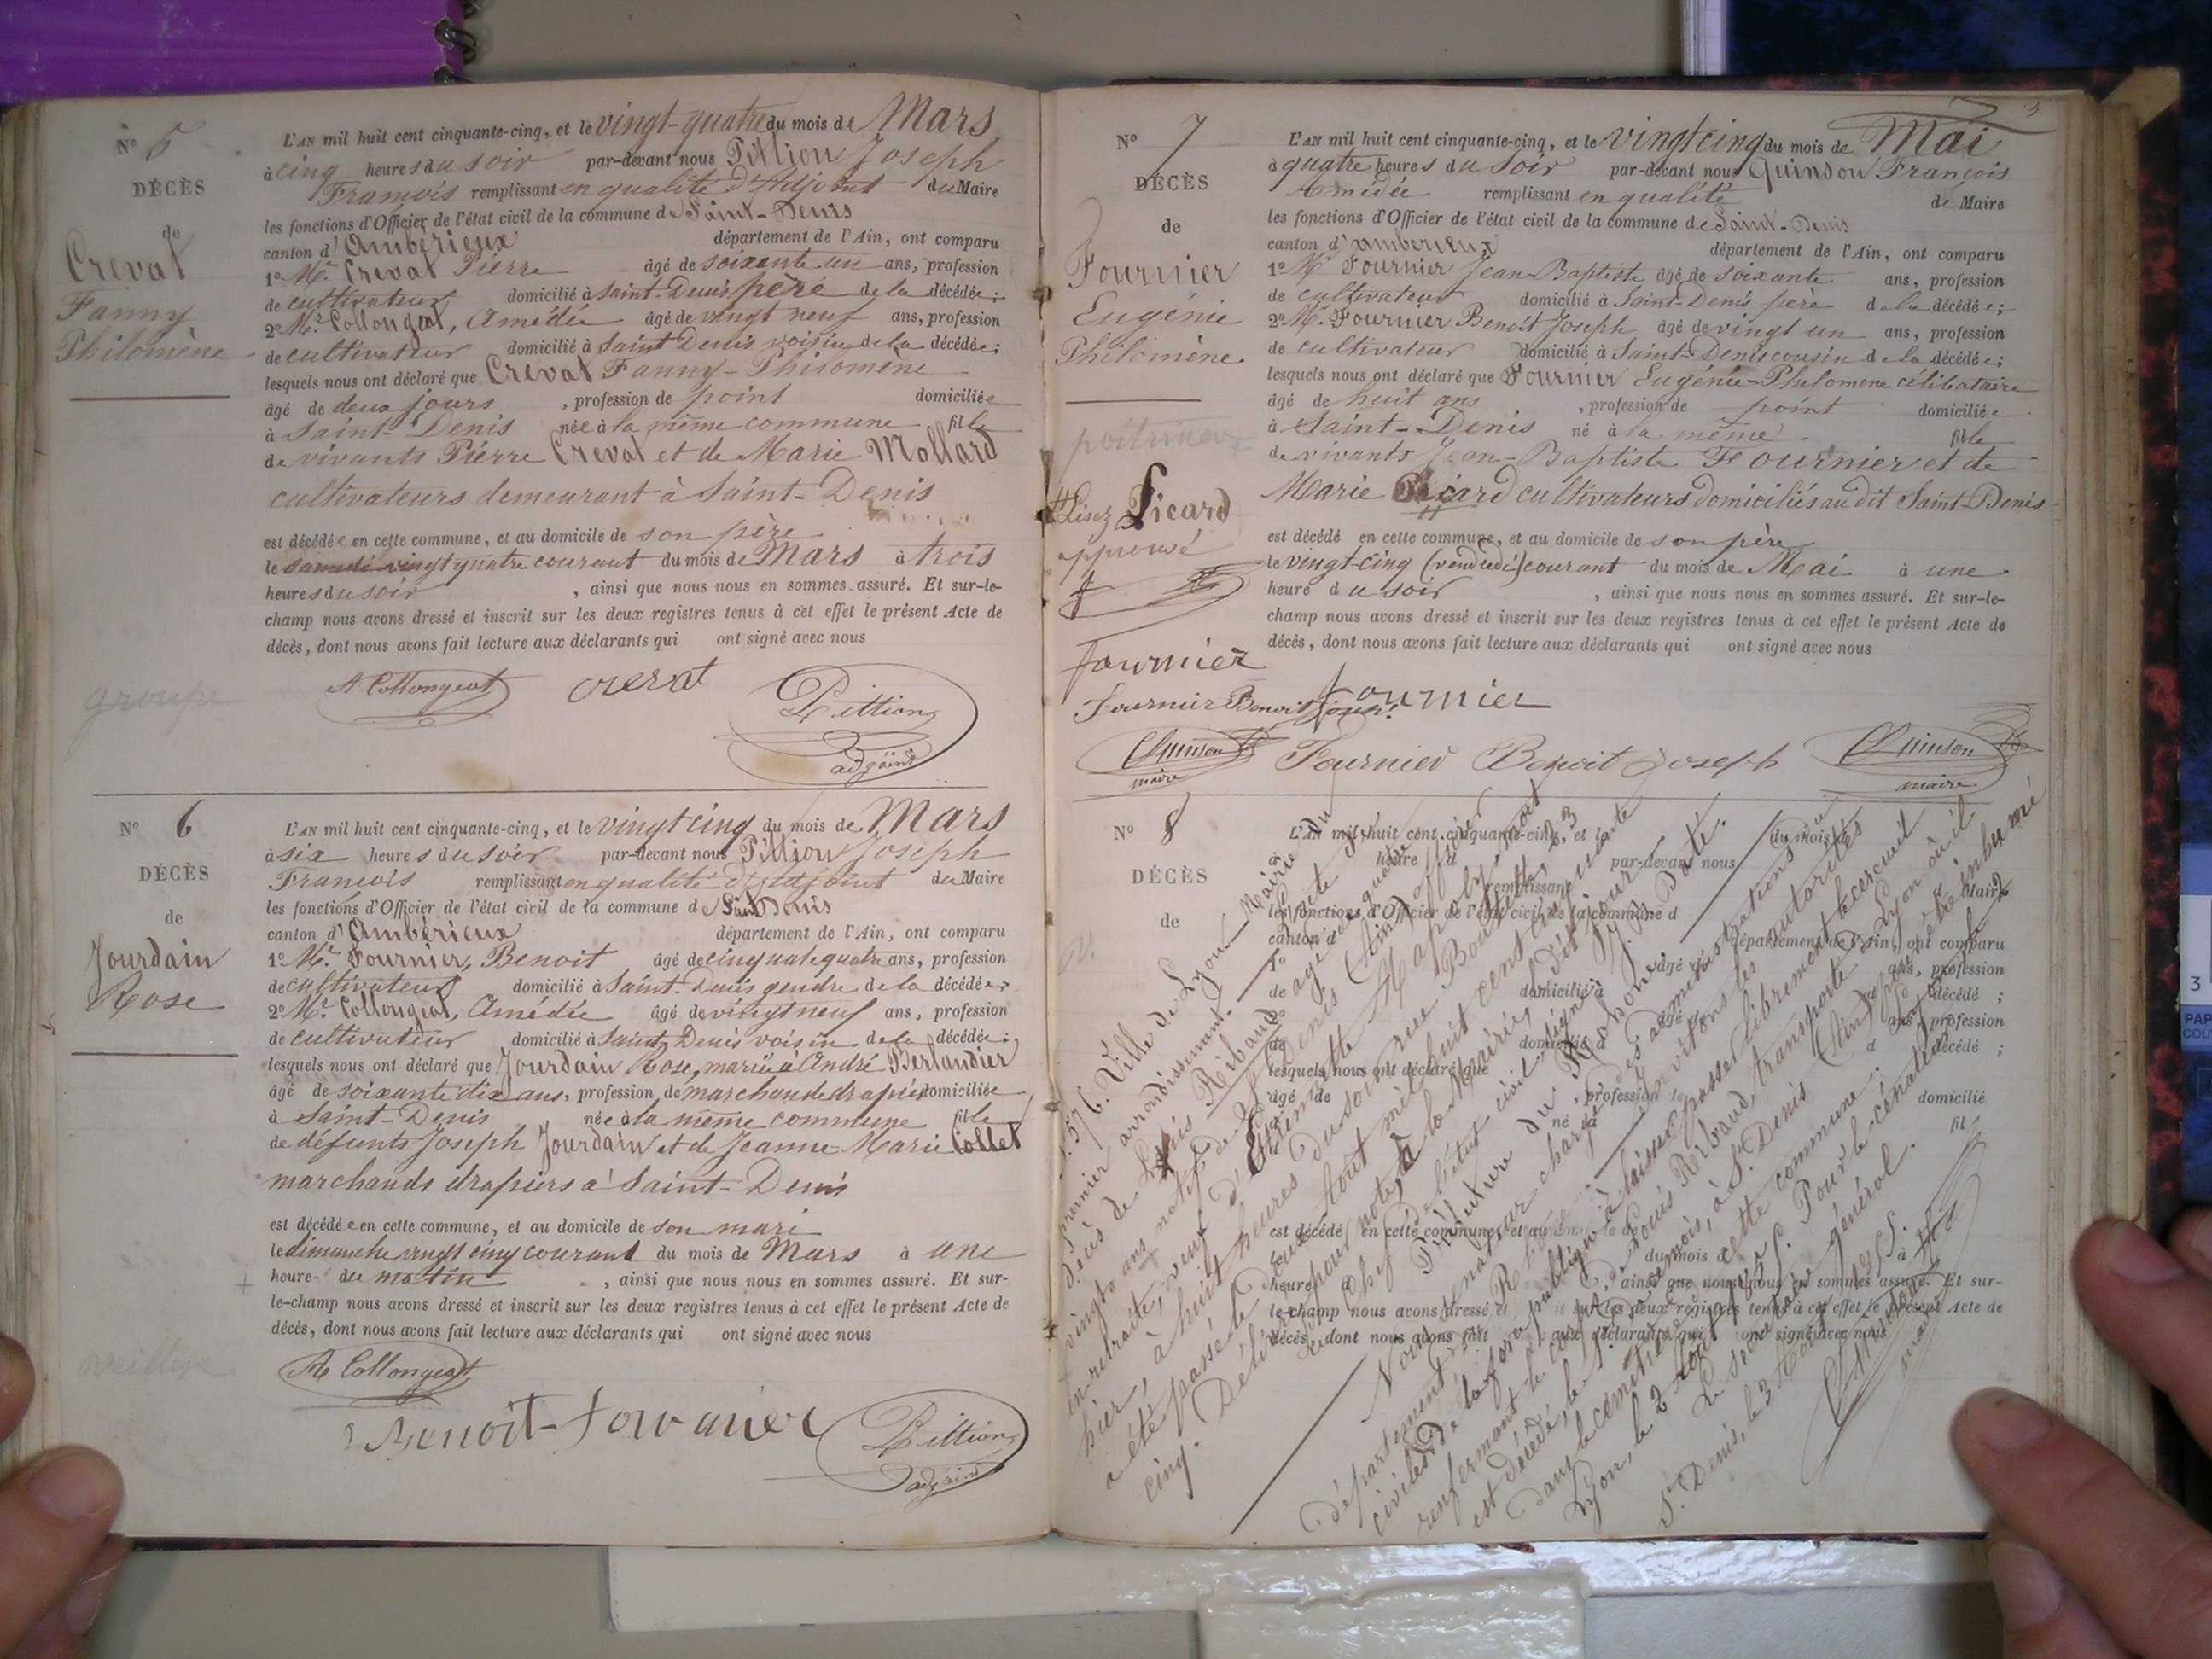 N° 5
DÉCÈS
de
Creval
Fanny
Philomène
L'AN mil huit cent cinquante-cinq, et le vingt-quatre du mois de Mars
à cinq heures du soir par-devant nous Pittion Joseph
François remplissant en qualité d'Adjoint du Maire
les fonctions d'Officier de l'état civil de la commune de Saint-Denis
canton d'Ambérieux département de l'Ain, ont comparu
1° Mr. Creval Pierre âgé de soixante un ans, profession
de cultivateur domicilié à Saint-Denis père de la décédée;
2° Mr. Collongeat, Amédée âgé de vingt neuf ans, profession
de cultivateur domicilié à Saint Denis voisin de la décédée;
lesquels nous ont déclaré que Creval Fanny-Philomène
âgé de deux jours, profession de point domiciliée
à Saint-Denis née à la même commune fille
de vivants Pierre Creval et de Marie Mollard
cultivateurs demeurant à Saint-Denis
est décédée en cette commune, et au domicile de son père
le samedi vingt quatre courant du mois de Mars à trois
heures du soir, ainsi que nous nous en sommes assuré. Et sur-le-
champ nous avons dressé et inscrit sur les deux registres tenus à cet effet le présent Acte de
décès, dont nous avons fait lecture aux déclarants qui ont signé avec nous
groupe
A Collongeat creval Pittion
adjoint
N° 6
DÉCÈS
de
Jourdain
Rose
L'AN mil huit cent cinquante-cinq, et le vingt cinq du mois de Mars
à six heures du soir par-devant nous Pittion Joseph
François remplissant en qualité d'Adjoint du Maire
les fonctions d'Officier de l'état civil de la commune de Saint Denis
canton d'Ambérieux département de l'Ain, ont comparu
1° Mr. Fournier, Benoit âgé de cinquate quatre ans, profession
de cultivateur domicilié à Saint-Denis gendre de la décédée;
2° Mr. Collongeat, Amédée âgé de vingt neuf ans, profession
de cultivateur domicilié à Saint Denis voisin de la décédée;
lesquels nous ont déclaré que Jourdain Rose, mariée à André Berlandier
âgé de soixante dix ans, profession de marchande drapier domiciliée
à Saint-Denis née à la même commune fille
de défunts Joseph Jourdain et de Jeanne Marie Collet
marchands drapiers à Saint-Denis
est décédée en cette commune, et au domicile de son mari
le dimanche vingt cinq courant du mois de Mars à une
heure du matin, ainsi que nous nous en sommes assuré. Et sur-
le-champ nous avons dressé et inscrit sur les deux registres tenus à cet effet le présent Acte de
décès, dont nous avons fait lecture aux déclarants qui ont signé avec nous
A Collongeat
Benoit-fournier Pittion
adjoint
N° 7
DÉCÈS
de
Fournier
Eugénie
Philomène
Lisez Picard
approuvé
L'AN mil huit cent cinquante-cinq, et le vingt cinq du mois de Mai
à quatre heures du soir par-devant nous Quinson François
Amédée remplissant en qualité de Maire
les fonctions d'Officier de l'état civil de la commune de Saint-Denis
canton d'ambérieux département de l'Ain, ont comparu
1° Mr Fournier Jean-Baptiste âgé de soixante ans, profession
de cultivateur domicilié à Saint-Denis père de la décédée;
2° Mr. Fournier Benoit Joseph âgé de vingt un ans, profession
de cultivateur domicilié à Saint-Denis cousin de la décédée;
lesquels nous ont déclaré que Fournier Eugénie-Philomène célibataire
âgé de huit ans, profession de point domiciliée
à Saint-Denis né à la même fille
de vivants Jean-Baptiste Fournier et de
Marie Picard cultivateurs domiciliés au dit Saint-Denis
est décédé en cette commune, et au domicile de son père
le vingt-cinq (vendredi) courant du mois de Mai à une
heure du soir, ainsi que nous nous en sommes assuré. Et sur-le-
champ nous avons dressé et inscrit sur les deux registres tenus à cet effet le présent Acte de
décès, dont nous avons fait lecture aux déclarants qui ont signé avec nous
fournier
Fournier Benoit Joseph fournier
Quinson Fournier Benoit Joseph Quinson
maire maire
N° 8
DÉCÈS
de
L'AN mil huit cent cinquante-cinq, et le du mois d
heure d par-devant nous
remplissant Maire
les fonctions d'Officier de l'état civil de la commune d
canton d département de l'Ain, ont comparu
domicilié à décédé ;
lesquels nous ont déclaré que
âgé de, profession de domicilié
né à fil
est décédé en cette commune, et au domicile de
du mois d à
heure d, ainsi que nous nous en sommes assuré. Et sur-
le-champ nous avons dressé et inscrit sur les deux registres tenus à cet effet le présent Acte de
décès, dont nous avons fait lecture aux déclarants qui ont signé avec nous
Ville de Lyon. Mairie du
premier arrondissement.
décès de Louis Ribaud
vingts ans natif de St Denis (Ain)
en retraite, veuf d'
hier, à huit heures du soir rue
a été passé le mil huit cent cinquante
cinq.
Délivré pour note à la Mairie, dit jour
l'état civil, signé
Préfecture du Rhône
département du Rhône chargé des administrations
civiles de la force publique à laisser passer librement le cercueil
renfermant le corps de Louis Ribaud, transporté de Lyon où il
est décédé, le à St. Denis (Ain) pour y être inhumé
dans le cimetière de cette commune.
Lyon, le 2
Le secrétaire général.
St. Denis, le 3
maire